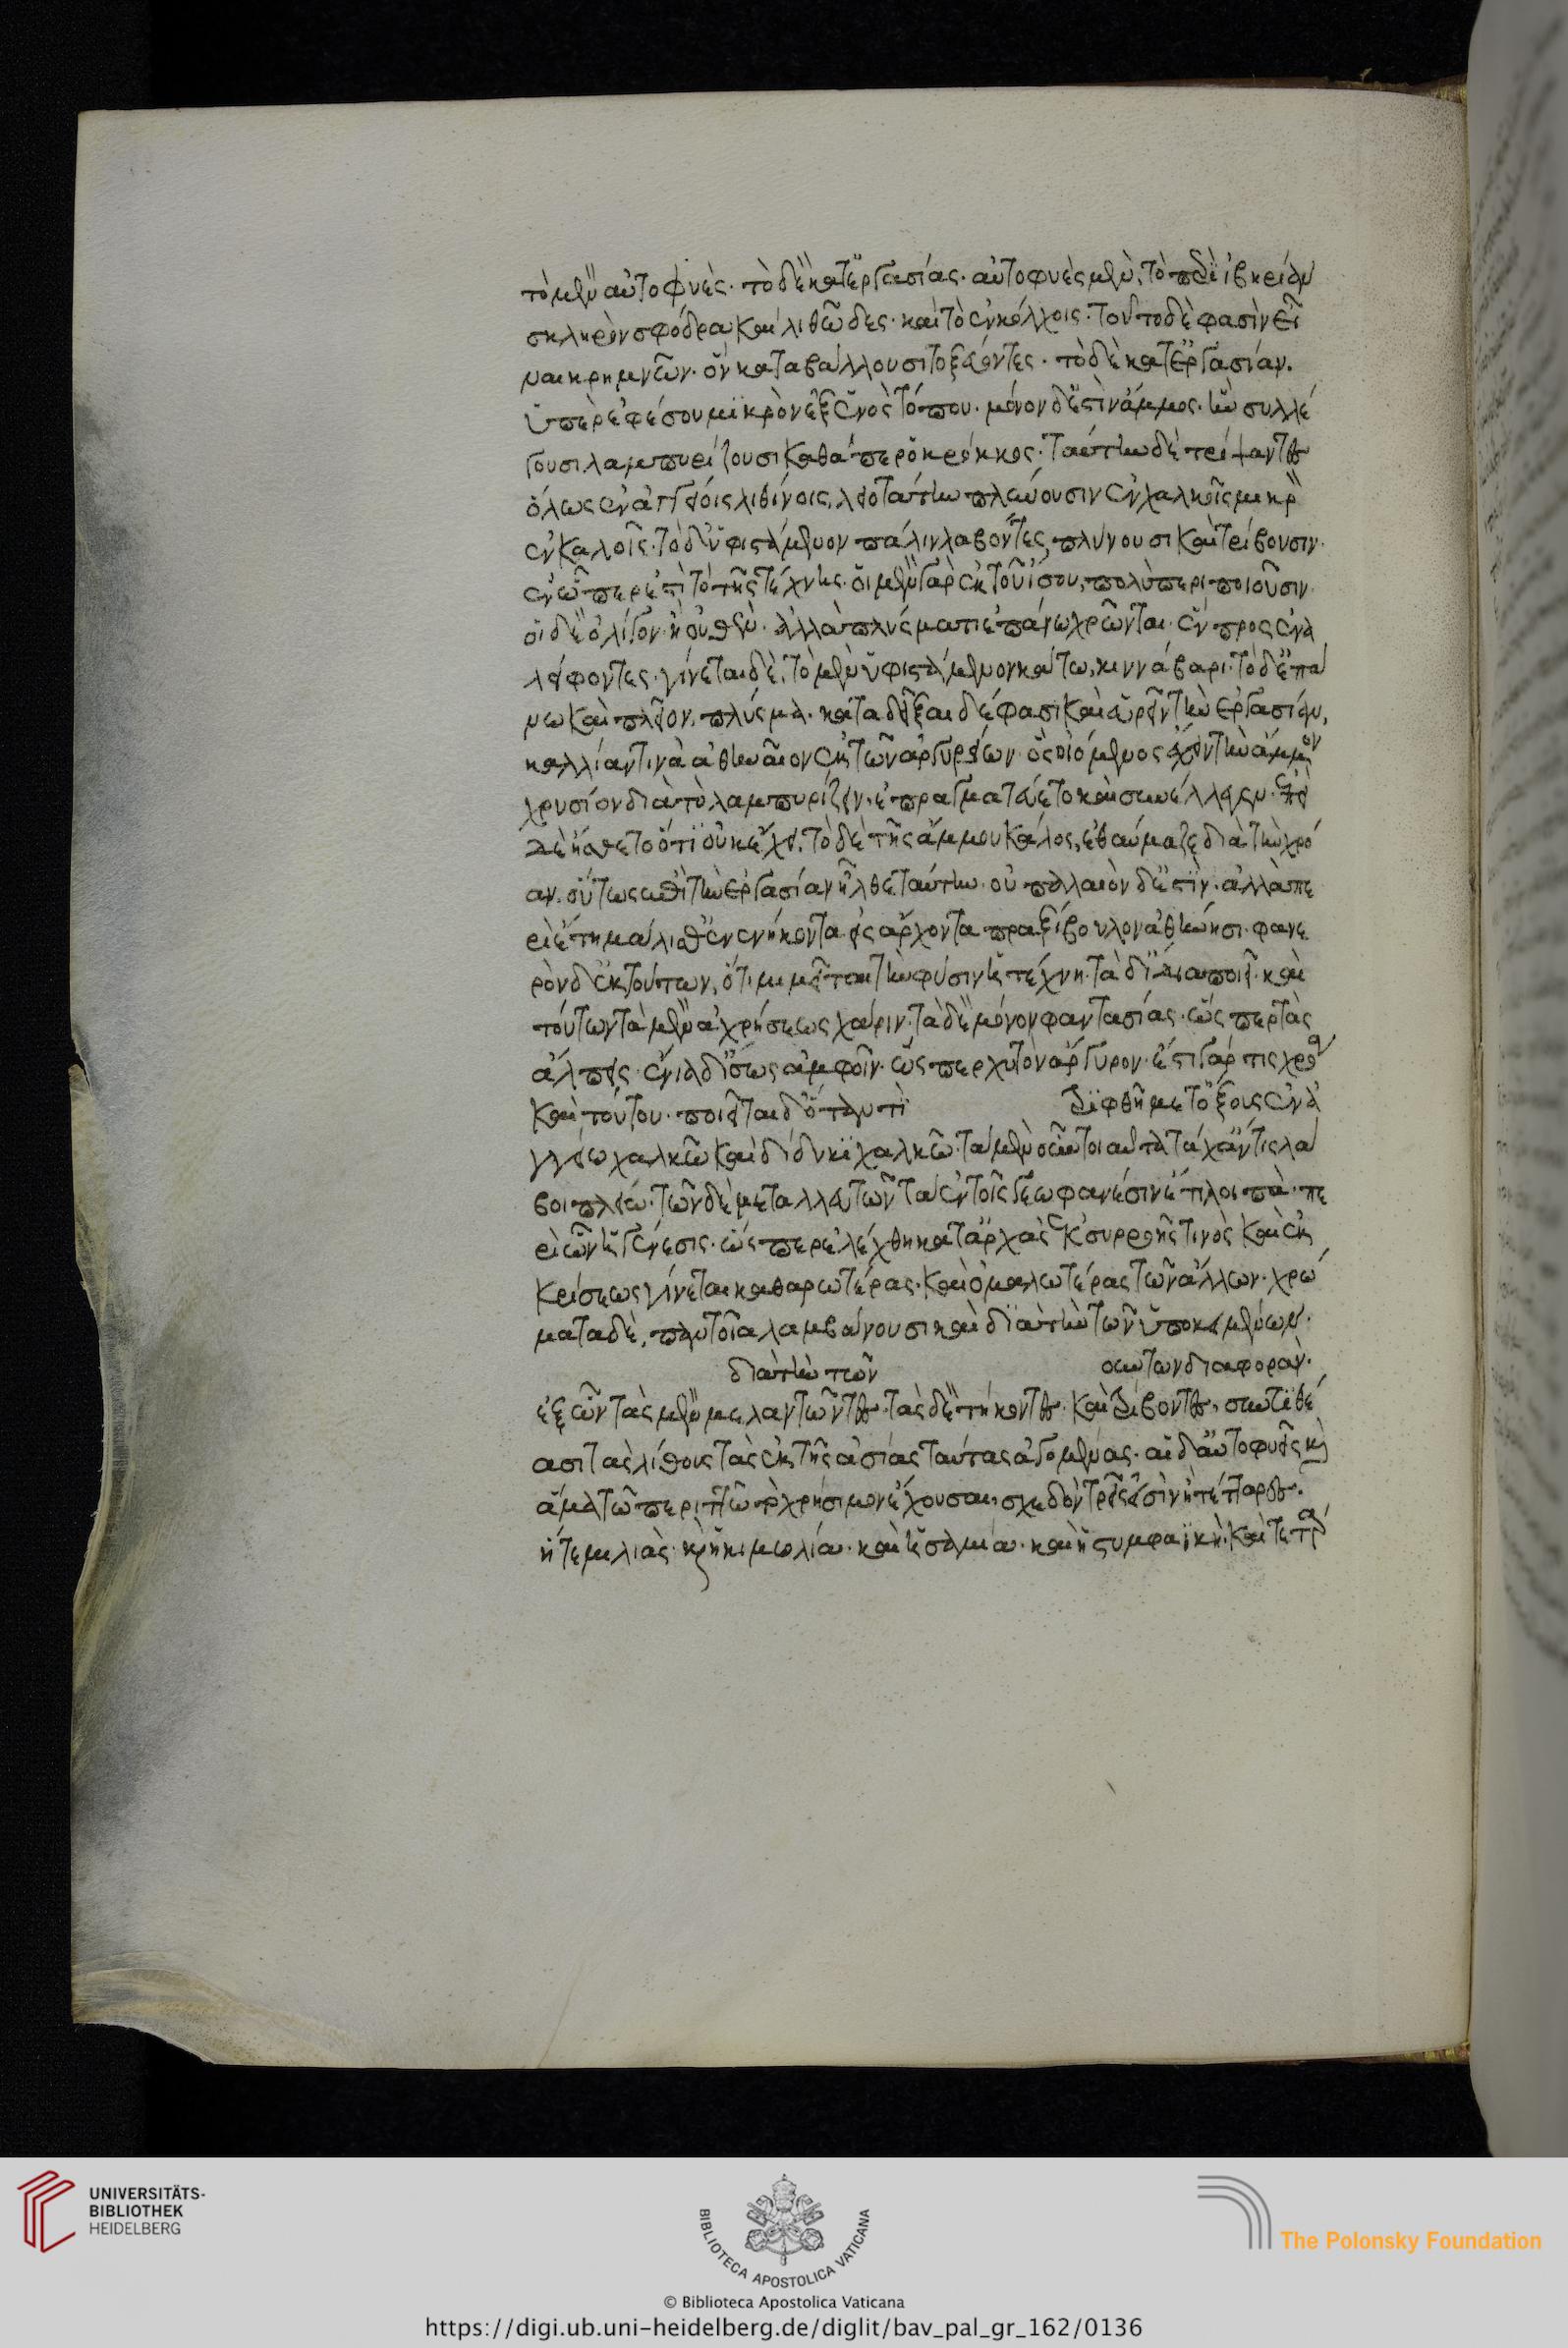 τὸ μὲν αὐτοφυὲς· τὸ δὲ κατ' ἐργασίας· αὐτοφυὲς μὲν, τὸ περὶ ἰβηρίαν
σκληρὸν σφόδρα καὶ λιθῶδες· καὶ τὸ ἐν κόλχοις· τοῦτο δὲ φασὶν εἶ
ναι κρημνῶν· ὃν καταβάλλουσι τοξεύοντες· τὸ δὲ κατ' ἐργασίαν.
ὑπὲρ ἐφέσου μϊκρὸν ἐξ ἑνὸς τόπου· μόνον δ' ἐστὶν ἄμμος· ἣν συλλέ
γουσι λαμπυρίζουσι καθάπερ ὁ κρόκκος· ταύτην δὲ τρίψαντες
ὅλως ἐν ἀγγείοις λιθίνοις, λειοτάτην πλύουσιν ἐν χαλκοῖς μικρ
ἐν καλοῖς· τὸ δ' ὑφιστάμενον πάλιν λαβόντες, πλύνουσι καὶ τρίβουσιν·
ἐν ᾧπερ ἐστὶ τὸ τῆς τέχνης· οἱ μὲν γὰρ ἐκ τοῦ ἴσου, πολὺ περιποιοῦσιν
οἱ δ' ὀλίγον· ἢ οὐθὲν· ἀλλὰ πλύσματι ἐπάνω χρῶνται· ἓν προς ἓν ἀ
λείφοντες· γίνεται δὲ, τὸ μὲν ὑφιστάμενον κάτω, κιννάβαρι· τὸ δ' ἐπά
νω καὶ πλεῖον, πλύσμα· καταδεῖξαι δέ φασι καὶ εὑρεῖν τὴν ἐργασίαν,
καλλίαν τινὰ ἀθηναῖον ἐκ τῶν ἀργυρείων· ὃς οἰόμενος ἔχειν τὴν ἄμμον
χρυσίον διὰ τὸ λαμπυρίζειν, ἐπραγματεύετο καὶ συνέλεγεν· ἐπεὶ
δὲ ᾔσθετο ὅτϊ οὐκ ἔχει, τὸ δὲ τῆς ἄμμου κάλος, ἐθαύμαζε διὰ τὴν χρό
αν· οὕτως ἐπὶ τὴν ἐργασίαν ἦλθε ταύτην· οὐ παλαιὸν δ' ἐστϊν· ἀλλὰ πε
ρὶ ἔτη μάλιστ' ἐνενήκοντα εἰς ἄρχοντα πραξίβουλον ἀθήνησι· φανε
ρὸν δ' ἐκ τούτων, ὅτι μιμεῖται τὴν φύσιν ἡ τέχνη· τὰ δ' ἴδια ποιεῖ· καὶ
τούτων τὰ μὲν χρήσεως χάριν· τὰ δὲ μόνον φαντασίας· ὥσπερ τὰς
ἀλπεῖς· ἔνια δ' ἴσως ἀμφοῖν· ὥσπερ χυτὸν ἄργυρον· ἔστι γάρ τις χρεία
καὶ τούτου· ποιεῖται δ' ὅταν τὶ τριφθῆ μετ' ὄξους ἐν ἀ
γγείω χαλκῶ καὶ δοίδυκϊ χαλκῶ· τὰ μὲν οὖν τοιαῦτα τάχ' ἄν τις λά
βοι πλείω· τῶν δὲ μεταλλευτῶν τὰ ἐν τοῖς γεωφανέσιν ἔτι λοιπὰ· πε
ρὶ ὧν ἡ γένεσις· ὥσπερ ἐλέχθη κατ' ἀρχὰς ἐκ συρροῆς τινὸς καὶ ἐκ
κρίσεως γίνεται καθαρωτέρας· καὶ ὁμαλωτέρας τῶν ἄλλων· χρώ
ματα δὲ, παντοῖα λαμβάνουσι καὶ διὰ τὴν τῶν ὑποκειμένων·
διὰ τὴν τῶν οιώτων διαφορὰν·
ἐξ ὧν τὰς μὲν μελαντῶντες· τὰς δὲ τήκοντες· καὶ τρίβοντες, συντιθέ
ασι τὰς λίθους τὰς ἐκ τῆς ἀσίας ταύτας ἀγομένας· αἱ δ' αὐτοφυεῖς καὶ
ἅμα τῶ περιττῶ τὸ χρήσιμον ἔχουσαι, σχεδὸν τρεῖς εἰσὶν ἢ τέτταρες·
ἥ τε μηλιὰς· καὶ ἡ κιμωλία· καὶ ἡ σαμία· καὶ ἡ τυμφαϊκὴ· καὶ τετάρ
UNIVERSITÄTS-
BIBLIOTHEK
HEIDELBERG
BIBLIOTECA APOSTOLICA VATICANA
The Polonsky Foundation
© Biblioteca Apostolica Vaticana
https://digi.ub.uni-heidelberg.de/diglit/bav_pal_gr_162/0136